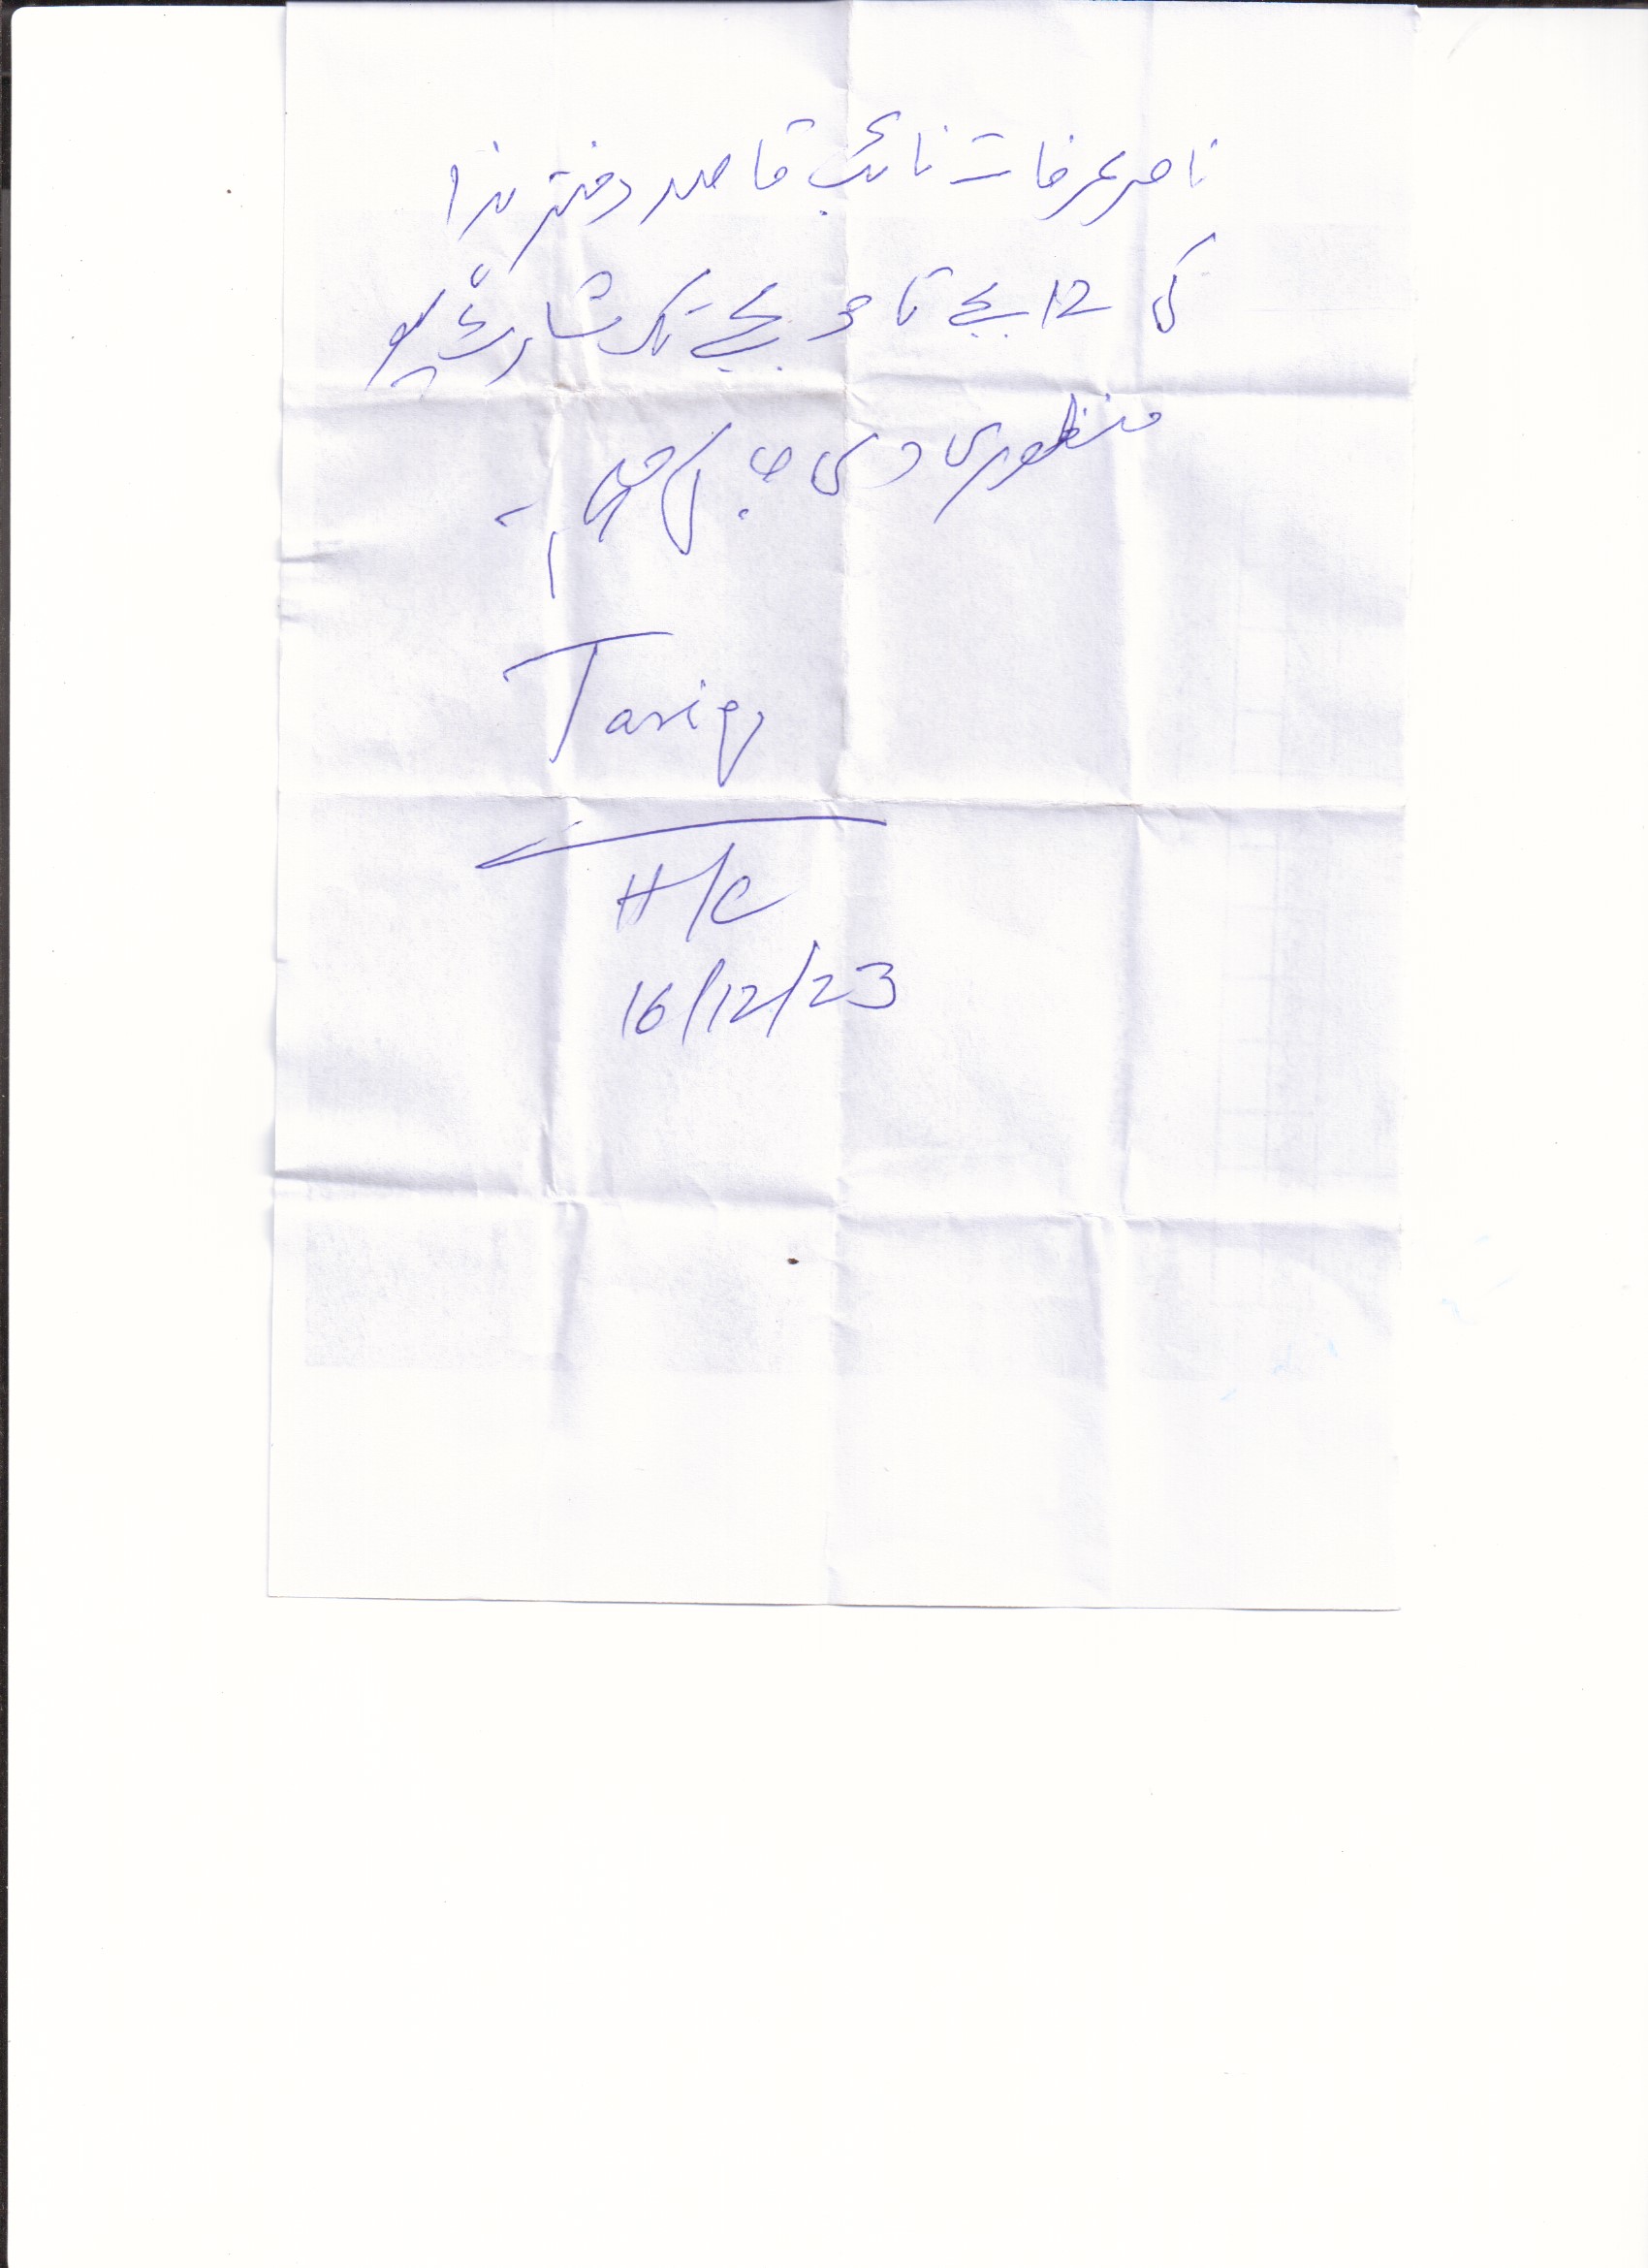 ناصر عرفات نائب قاصد دفتر ہذا
کی 12 بجے تا 3 بجے تک شارٹ لیو
منظوری دی جا چکی ہے۔
Tariq
H/C
16/12/23